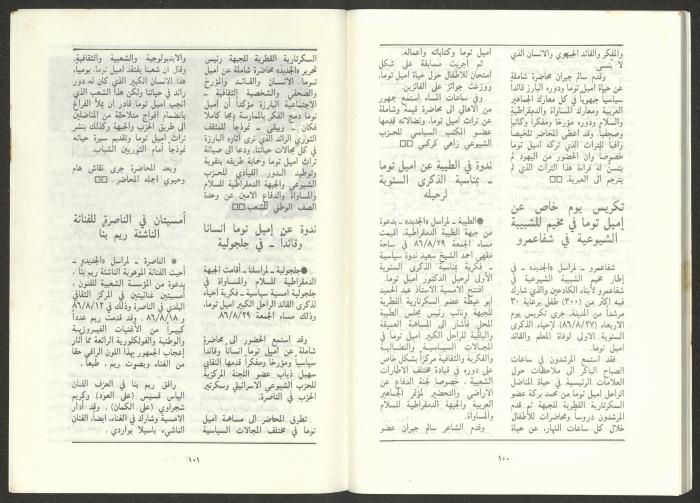 والمفكر والقائد الجبهوي والانسان الذي
لا يُنسى.
وقدم سالم جبران محاضرة شاملة
عن حياة اميل توما ودوره البارز قائداً
سياسياً جبهوياً في كل معارك الجماهير
العربية ومعارك المساواة والديمقراطية
والسلام ودوره مؤرخاً ومفكراً وكاتباً
وصحفياً. وقد اعطى المحاضر تلخيصاً
وافياً للتراث الذي تركه اميل توما
خصوصاً وان الحضور من اليهود لم
يتسنّ له قراءة هذا التراث الذي لم
يترجم الى العبرية.
تكريس يوم خاص عن
إميل توما في مخيم للشبيبة
الشيوعية في شفاعمرو
شفاعمرو - لمراسل «الجديد» - في
إطار مخيم الشبيبة الشيوعية في
شفاعمرو لأبناء الكادحين والذي شارك
فيه اكثر من (٣٠٠) طفل برعاية ٣٠
مرشداً من المدينة، جرى تكريس يوم
الاربعاء (٨٦/٨/٢٧) لإحياء الذكرى
السنوية الاولى لوفاة المعلم والقائد
اميل توما.
فقد استمع المرشدون في ساعات
الصباح الباكر الى ملاحظات حول
العلامات الرئيسية في حياة المناضل
الراحل اميل توما من محمد بركة عضو
السكرتارية القطرية للجبهة ثم قدم
المرشدون دروساً ومحاضرات للأطفال
خلال كل ساعات النهار، عن حياة
اميل توما وكتاباته واعماله.
ثم أجريت مسابقة على شكل
امتحان للاطفال حول حياة اميل توما،
ووزعت جوائز على الفائزين.
وفي ساعات المساء استمع جمهور
من الأهالي الى محاضرة قيمة وشاملة
عن تراث اميل توما، ونضالاته قدمها
عضو المكتب السياسي للحزب
الشيوعي زاهي كركبي
ندوة في الطيبة عن اميل توما
- بمناسبة الذكرى السنوية
لرحيله
● الطيبة - لمراسل «الجديد» - بدعوة
من جبهة الطيبة الديمقراطية، اقيمت
مساء الجمعة ٨٦/٨/٢٩ في ساحة
مقهى احمد الشيخ سعيد ندوة سياسية
- فكرية بمناسبة الذكرى السنوية
الأولى لرحيل الدكتور اميل توما.
افتتح الامسية الاستاذ عبد الحميد
ابو عيطة عضو السكرتارية القطرية
للجبهة ونائب رئيس مجلس الطيبة
المحلي فأشار الى المساهمة العميقة
والباقية للراحل الكبير اميل توما في
المجالات السياسية والنضالية
والفكرية والثقافية مركزاً بشكل خاص
على دوره في قيادة مختلف الاطارات
الشعبية، خصوصاً لجنة الدفاع عن
الاراضي والتحضير لمؤتمر الجماهير
العربية والجبهة الديمقراطية للسلام
والمساواة.
وقدم الشاعر سالم جبران عضو
١٥٠
السكرتارية القطرية للجبهة رئيس
تحرير «الجديد» محاضرة شاملة عن اميل
توما الانسان والقائد والمؤرخ
والصحفي والشخصية الثقافية -
الاجتماعية البارزة مؤكداً ان اميل
توما دمج الفكر بالممارسة دمجاً كاملا
فكان - ويبقى - نموذجاً للمثقف
الثوري الرائد الذي نرى آثاره البارزة
في كل مجالات حياتنا. ودعا الى صيانة
تراث اميل توما وحماية طريقه بتقوية
وتوطيد الدور القيادي للحزب
الشيوعي والجبهة الديمقراطية للسلام
والمساواة والدفاع الامين عن وحدة
الصف الوطني للشعب.
ندوة عن إميل توما انسانا
وقائداً - في جلجولية
● جلجولية - لمراسلنا - أقامت الجبهة
الديمقراطية للسلام والمساواة في
جلجولية امسية سياسية - فكرية احياء
لذكرى القائد الراحل الكبير اميل توما،
وذلك مساء الجمعة ٨٦/٨/٢٩.
وقد استمع الحضور الى محاضرة
شاملة عن اميل توما انساناً وقائداً
سياسياً ومؤرخاً ومفكراً قدمها النقابي
سهيل ذياب عضو اللجنة المركزية
للحزب الشيوعي الاسرائيلي وسكرتير
الحزب في الناصرة.
تطرق المحاضر الى مساهمة اميل
توما في مختلف المجالات السياسية
والايديولوجية والشعبية والثقافية.
وقال ان شعبنا يفتقد اميل توما، يومياً،
هذا الانسان الكبير الذي كان له دور
رائد في حياتنا ولكن هذا الشعب الذي
انجب اميل توما قادر ان يملأ الفراغ
بانضمام افواج متلاحقة من المناضلين
الى طريق الحزب والجبهة وكذلك بنشر
تراث اميل توما وتقديم سيرة حياته
نموذجاً امام الثوريين الشباب.
وبعد المحاضرة جرى نقاش هام
وحيوي اجمله المحاضر.
أمسيتان في الناصرة للفنانة
الناشئة ريم بنا
● الناصرة - لمراسل «الجديد» -
أحيت الفنانة الموهوبة الناشئة ريم بنا،
بدعوة من المؤسسة الشعبية للفنون،
أمسيتين غنائيتين في المركز الثقافي
البلدي في الناصرة وذلك في ٨٦/٨/١٢
و ٨٦/٨/١٨. وقد قدمت ريم عدداً
كبيراً من الأغنيات الفيروزية
والوطنية والفولكلورية الرائعة مما أثار
إعجاب الجمهور بهذا اللون الراقي حقا
من الغناء، وبصوت ريم، طبعاً.
رافق ريم بنا في العزف الفنان
الياس قسيس (على العود) وكريم
شجراوي (على الكمان). وقد أدار
الامسية وشارك في الغناء، ايضاً، الفنان
الناشيء باسيلا بواردي.
١٥١